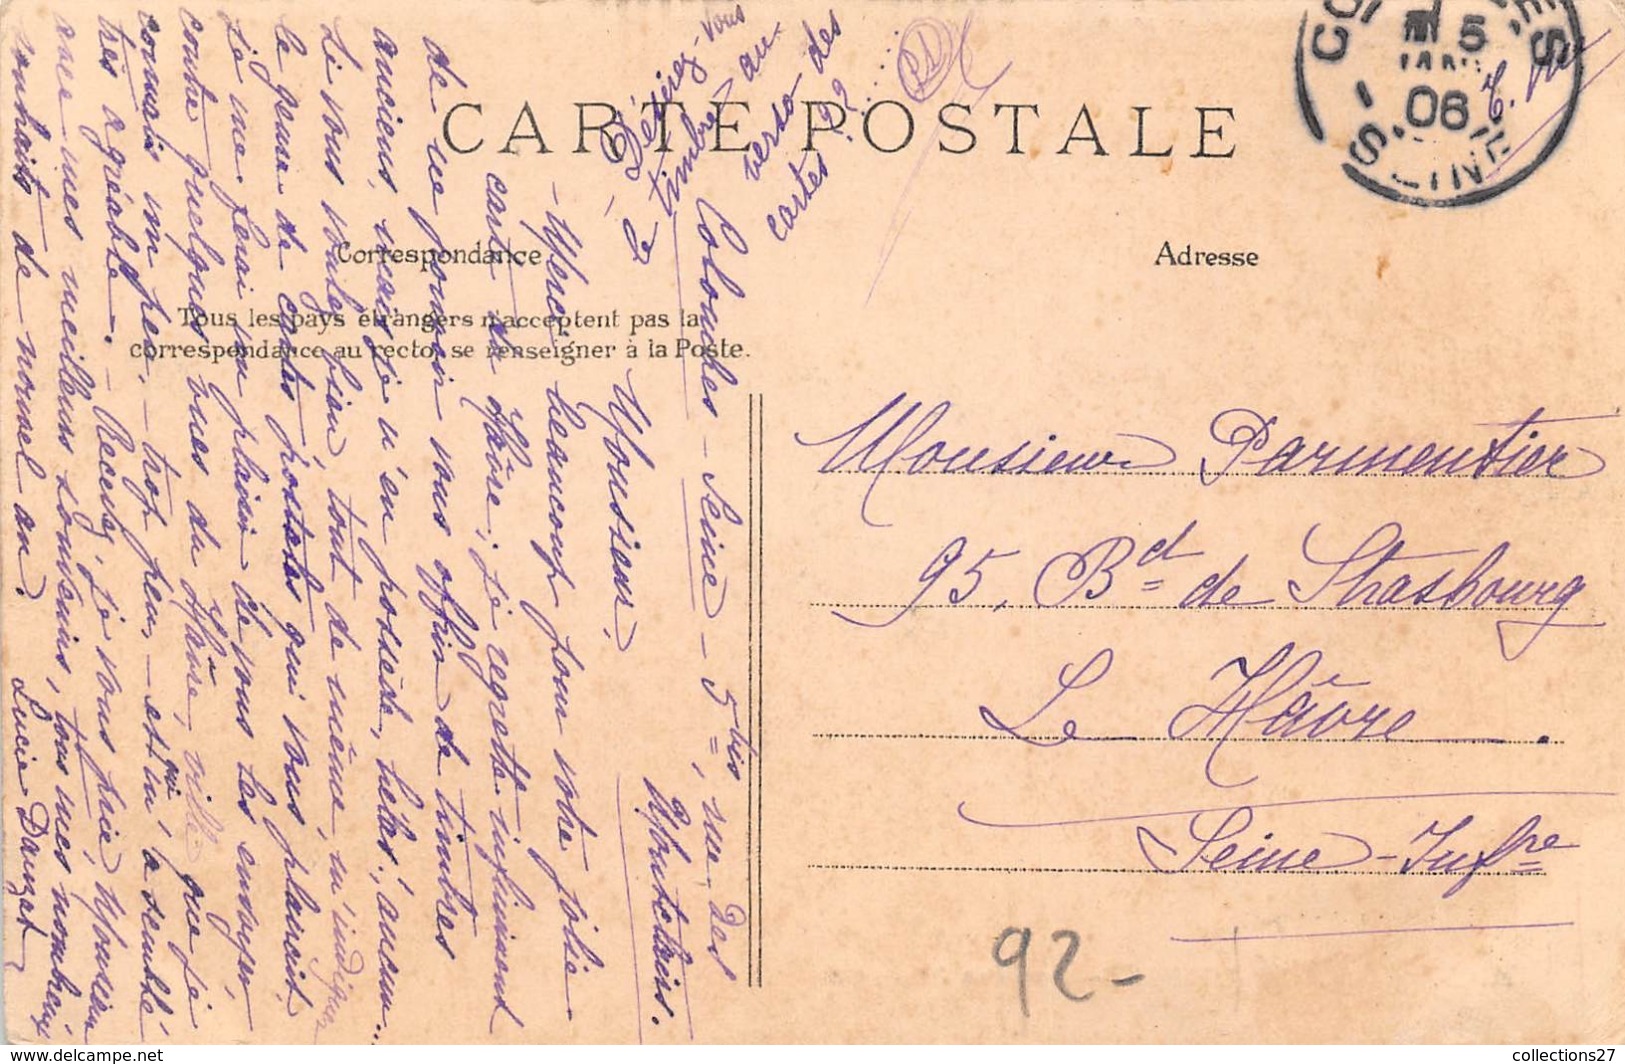 CARTE POSTALE
Correspondance
Adresse
Tous les pays étrangers n'acceptent pas la
correspondance au recto, se renseigner à la Poste.
5
06
SEINE
Monsieur Parmentier
95, Bd de Strasbourg
Le Hâvre.
Seine-Infre
92-
P.S. Désirez-vous
timbre au
verso des
cartes ??.....
Colombes-Seine - 5bis, rue des
Monteclairs.
Monsieur,
- Merci beaucoup pour votre jolie
carte du Hâvre ; je regrette infiniment
de ne pouvoir vous offrir de timbres
anciens, mais je n'en possède, hélas!, aucun..
Si vous voulez bien, tout de même, m'indiquer
le genre de cartes postales qui vous plairait,
je me ferai un plaisir de vous les envoyer,
contre quelques vues du Hâvre, ville que je
connais un peu, - trop peu, - et qui m'a semblé
très agréable. - Recevez, je vous prie, Monsieur
avec mes meilleurs souvenirs, tous mes nombreux
souhaits de nouvel an.
Lucie Dauzat
collections27
www.delcampe.net